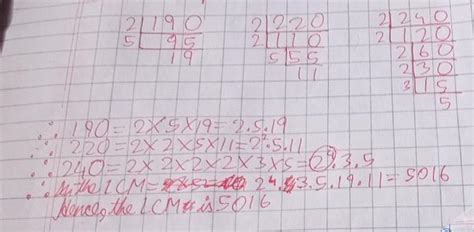 2 190 2 220 2 240
5 95 2 110 2 120
19 5 55 2 60
11 2 30
3 15
5
∴ 190 = 2×5×19 = 2.5.19
∴ 220 = 2×2×5×11 = 2².5.11
∴ 240 = 2×2×2×2×3×5 = 2⁴.3.5
∴ the LCM = 2⁴.3.5.19.11 = 5016
Hence, the LCM is 5016